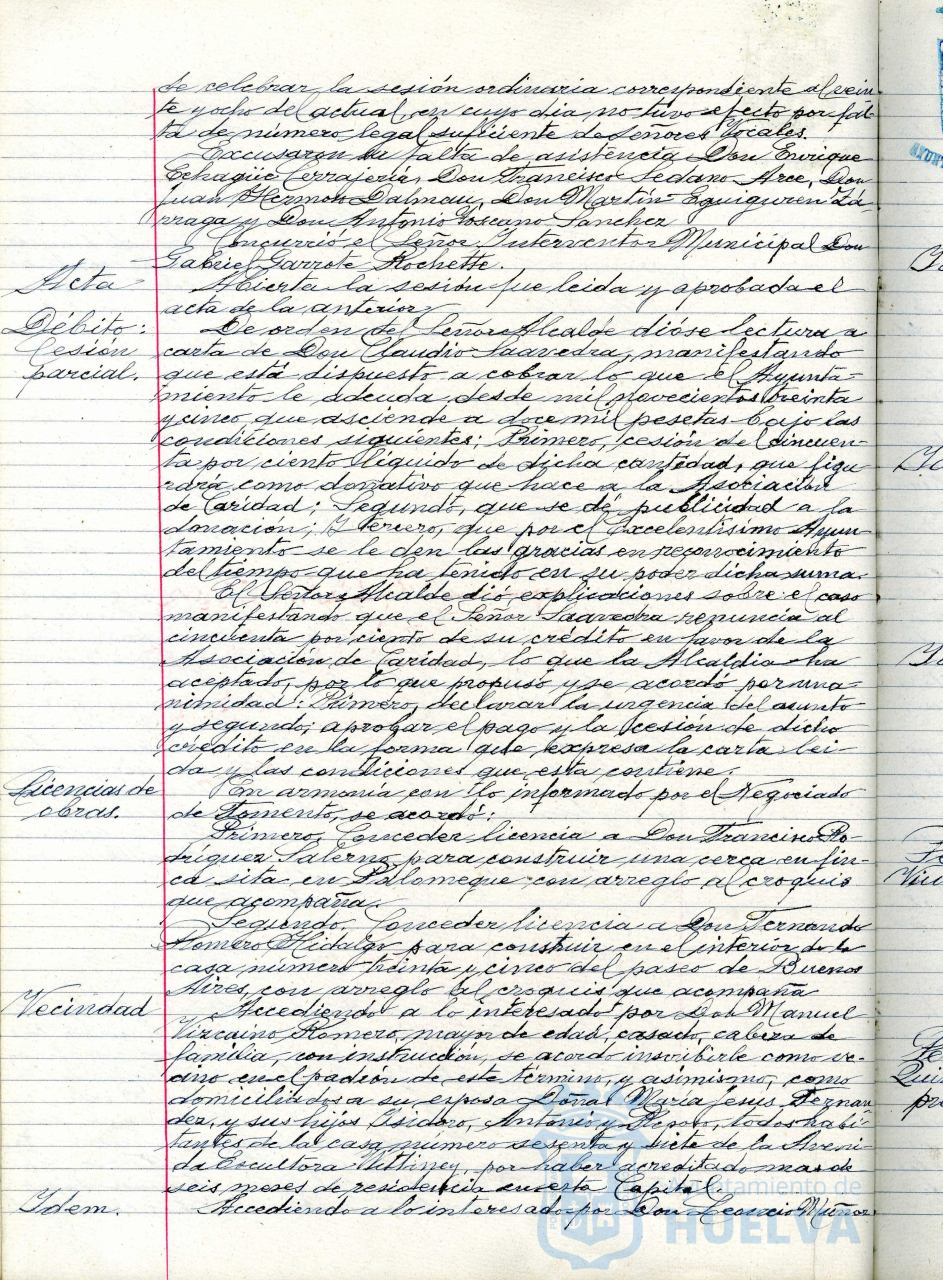 de celebrar la sesión ordinaria correspondiente al vein-
te y ocho del actual, en cuyo dia no tuvo efecto por fal-
ta de número legal suficiente de Señores Vocales.
Excusaron su falta de asistencia Don Enrique
Echagüe Cerrajería, Don Francisco Sedano Arce, Don
Juan Hermoto Dalmau, Don Martín Eguiguren Iz-
rraga y Don Antonio Toscano Sanchez
Concurrió el Señor Interventor Municipal Don
Gabriel Garrote Rochette.
Acta
Abierta la sesión fue leida y aprobada el
acta de la anterior.
Débito:
Cesión
parcial.
De orden del Señor Alcalde dióse lectura a
carta de Don Claudio Saavedra, manifestando
que está dispuesto a cobrar lo que el Ayunta-
miento le adeuda desde mil novecientos treinta
y cinco que asciende a doce mil pesetas bajo las
condiciones siguientes: Primero, cesión del cincuen-
ta por ciento líquido de dicha cantidad, que figu
rará como donativo que hace a la Asociación
de Caridad; Segundo, que se dé publicidad a la
donación; Y tercero, que por el Excelentísimo Ayun-
tamiento se le den las gracias en reconocimiento
del tiempo que ha tenido en su poder dicha suma.
El Señor Alcalde dió explicaciones sobre el caso
manifestando que el Señor Saavedra renuncia al
cincuenta por ciento de su crédito en favor de la
Asociación de Caridad, lo que la Alcaldia ha
aceptado, por lo que propuso y se acordó por una-
nimidad: Primero, declarar la urgencia del asunto
y segundo; aprobar el pago y la cesión de dicho
crédito en la forma que expresa la carta lei-
da y las condiciones que esta contiene.
Licencias de
obras.
En armonía con lo informado por el Negociado
de Fomento, se acordó:
Primero, Conceder licencia a Don Francisco Ro-
dríguez Salerno para construir una cerca en fin-
ca sita en Palomeque con arreglo al croquis
que acompaña.
Segundo, Conceder licencia a Don Fernando
Romero Hidalgo para construir en el interior de la
casa número treinta y cinco del paseo de Buenos
Aires, con arreglo al croquis que acompaña
Vecindad
Accediendo a lo interesado por Don Manuel
Vizcaino Romero, mayor de edad, casado, cabeza de
familia, con instrucción, se acordo inscribirle como ve-
cino en el padrón de este término, y asimismo, como
domiciliados a su esposa Doña Maria Jesus Fernan-
dez, y sus hijos Isidoro, Antonio y todos habi-
tantes de la casa número sesenta y siete de la Aveni-
da Escultora Whitney, por haber acreditado mas de
seis meses de residencia en esta Capital.
Idem.
Accediendo a lo interesado por Don Leoncio Muñoz
Ayuntamiento de
HUELVA